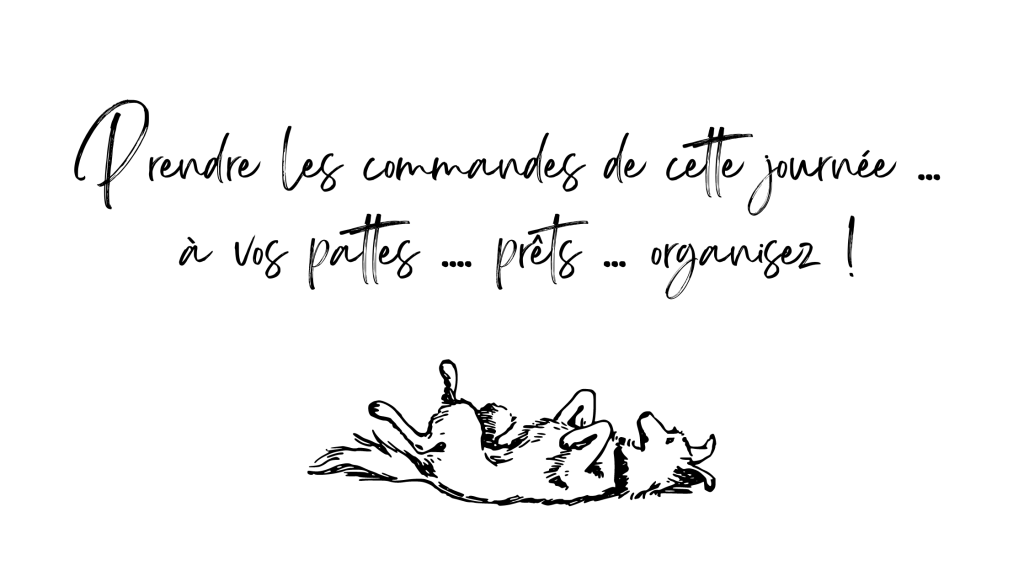 Prendre les commandes de cette journée ...
à vos pattes .... prêts ... organisez !